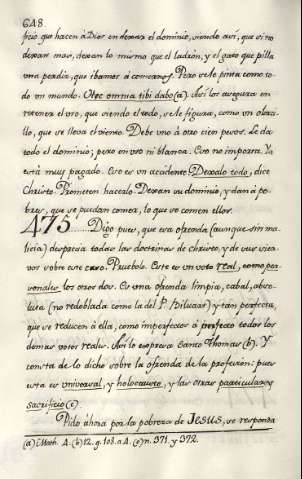 648
ficio que hacen a Dios en dexar el dominio, siendo asi, que si no
dexan mas, dexan lo mismo que el ladrón, y el gato que pilla
una perdiz, que ibamos á comernos. Pero se le pinta como to-
do un mundo. Haec omnia tibi dabo (a). Asi los asegura en
retener el oro, que siendo el todo, se le figura, como un obra-
llo, que se lleva el viento. Debe uno á otro cien pesos. Le da
todo el dominio; pero en oro ni blanca. Eso no importa. Ya
está muy pagado. Eso es un accidente. Dexadlo todo, dice
Christo. Prometen hacerlo. Dexan su dominio, y dan á po-
bres, que se puedan comer, lo que se comen ellos.
475 Digo pues, que esa ofrenda (aunque sin ma-
licia) desprecia todas las doctrinas de Christo, y de sus sier-
vos sobre este caso. Pruebolo. Este es un voto real, como per-
sonales los otros dos. Es una ofrenda limpia, cabal, abso-
luta (no redoblada como la del P. Biluart) y tan perfecta,
que se reducen á ella, como imperfectos á perfecto todos los
demas votos reales. Asi lo expresa Santo Thomas (b). Y
consta de lo dicho sobre la ofrenda de la profesion: pues
esta es universal, y holocausto, y las otras particulares, y
sacrificio (c)
Pido ahora por la pobreza de JESUS, se responda
(a) Math. 4. (b) 12. q. 108. a 4. (c) n. 371. y 372.